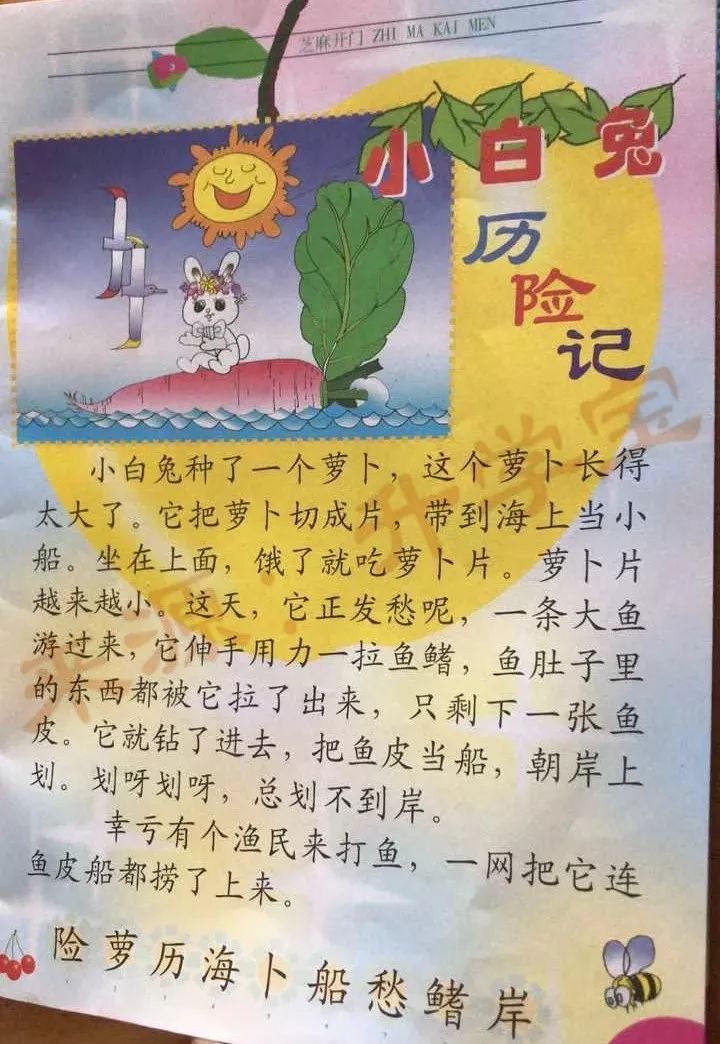 芝麻开门 ZHI MA KAI MEN
小白兔
历
险
记
小白兔种了一个萝卜，这个萝卜长得
太大了。它把萝卜切成片，带到海上当小
船。坐在上面，饿了就吃萝卜片。萝卜片
越来越小。这天，它正发愁呢，一条大鱼
游过来，它伸手用力一拉鱼鳍，鱼肚子里
的东西都被它拉了出来，只剩下一张鱼
皮。它就钻了进去，把鱼皮当船，朝岸上
划。划呀划呀，总划不到岸。
幸亏有个渔民来打鱼，一网把它连
鱼皮船都捞了上来。
险萝历海卜船愁鳍岸
来源：升学宝